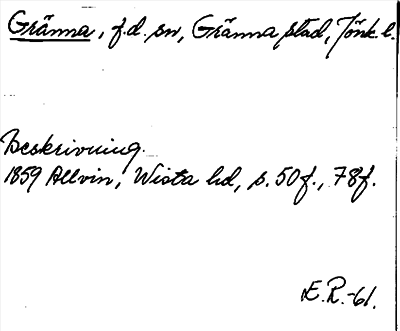 Gränna, f.d. sn, Gränna stad, Jönk.l.
Beskrivning.
1859 Allvin, Wista hd, s. 50 f., 78 f.
E.R.-61.